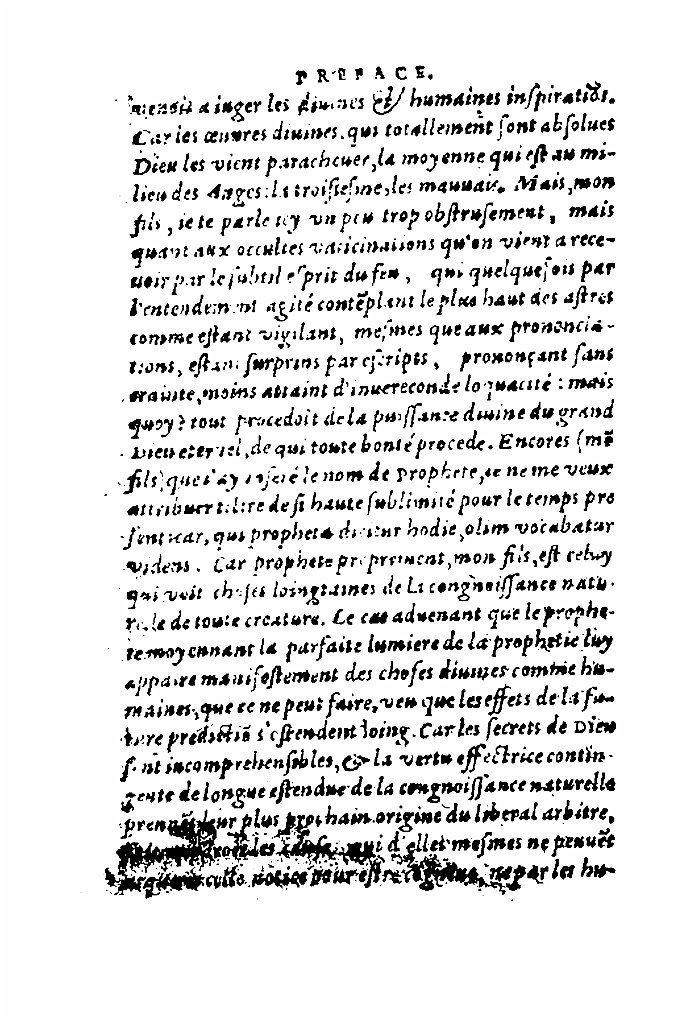 PREFACE.
a iuger les diuines & humaines inſpiratiõs.
Car les œuures diuines, qui totallement ſont abſolues
Dieu les vient paracheuer, la moyenne qui eſt au mi-
lieu des Anges: la troiſieſme, les mauuais. Mais, mon
fils, ie te parle icy vn peu trop obſtruſement, mais
quant aux occultes vaticinations qu'on vient a rece-
uoir par le ſubtil eſprit du feu, qui quelque fois par
l'entendement agité contẽplant le plus haut des aſtres
comme eſtant vigilant, meſmes que aux prononcia-
tions, eſtant ſurprins par eſcripts, prononçant ſans
crainte, moins attaint d'inuereconde loquacité: mais
quoy? tout procedoit de la puiſſance diuine du grand
Dieu eternel, de qui toute bonté procede. Encores (mõ
fils) que i'ay inſeré le nom de prophete, ie ne me veux
attribuer tiltre de ſi haute ſublimité pour le temps pre
ſent: car, qui propheta dicitur hodie, olim vocabatur
videns. Car prophete proprement, mon fils, eſt celuy
qui voit choſes loingtaines de la congnoiſſance natu-
relle de toute creature. Le cas aduenant que le prophe-
te moyennant la parfaite lumiere de la prophetie luy
appaire manifeſtement des choſes diuines comme hu-
maines, que ce ne peut faire, veu que les effets de la fu-
ture predictiõ s'eſtendent loing. Car les ſecrets de Dieu
ſont incomprehenſibles, & la vertu effectrice contin-
gente de longue eſtendue de la congnoiſſance naturelle
prennẽt leur plus prochain origine du liberal arbitre,
les qui d'elles meſmes ne peuuẽt
celle notice pour eſtre ne par les hu-